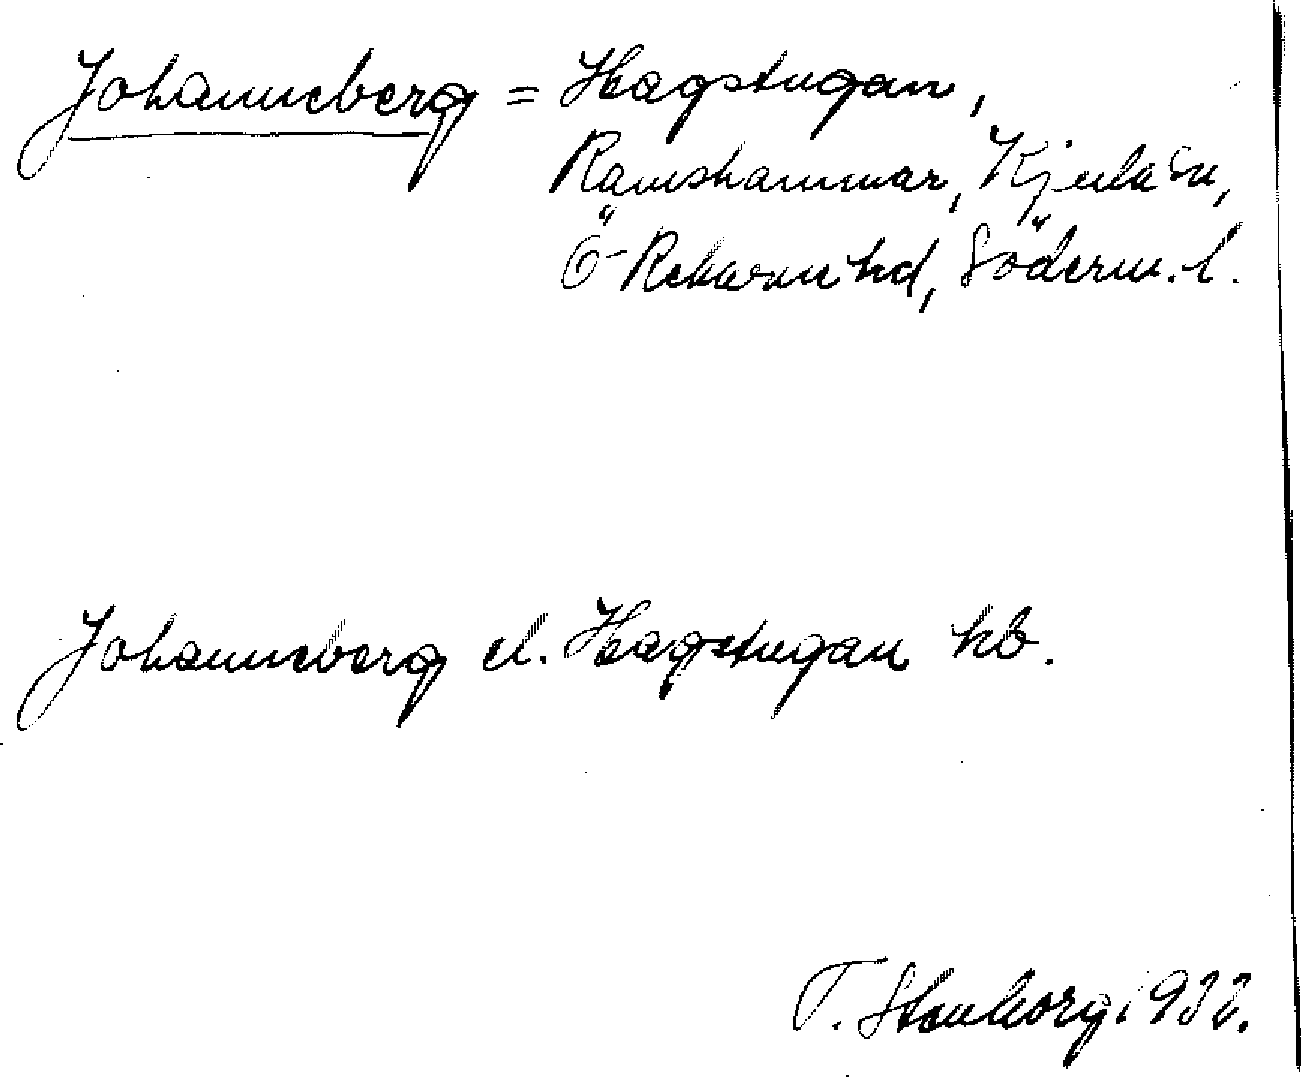 Johanneberg = Hagstugan,
Ramshammar, Kjula sn,
Ö-Rekarne hd, Söderm. l.
Johanneberg el. Hagstugan hb.
T. Stenborg 1933.